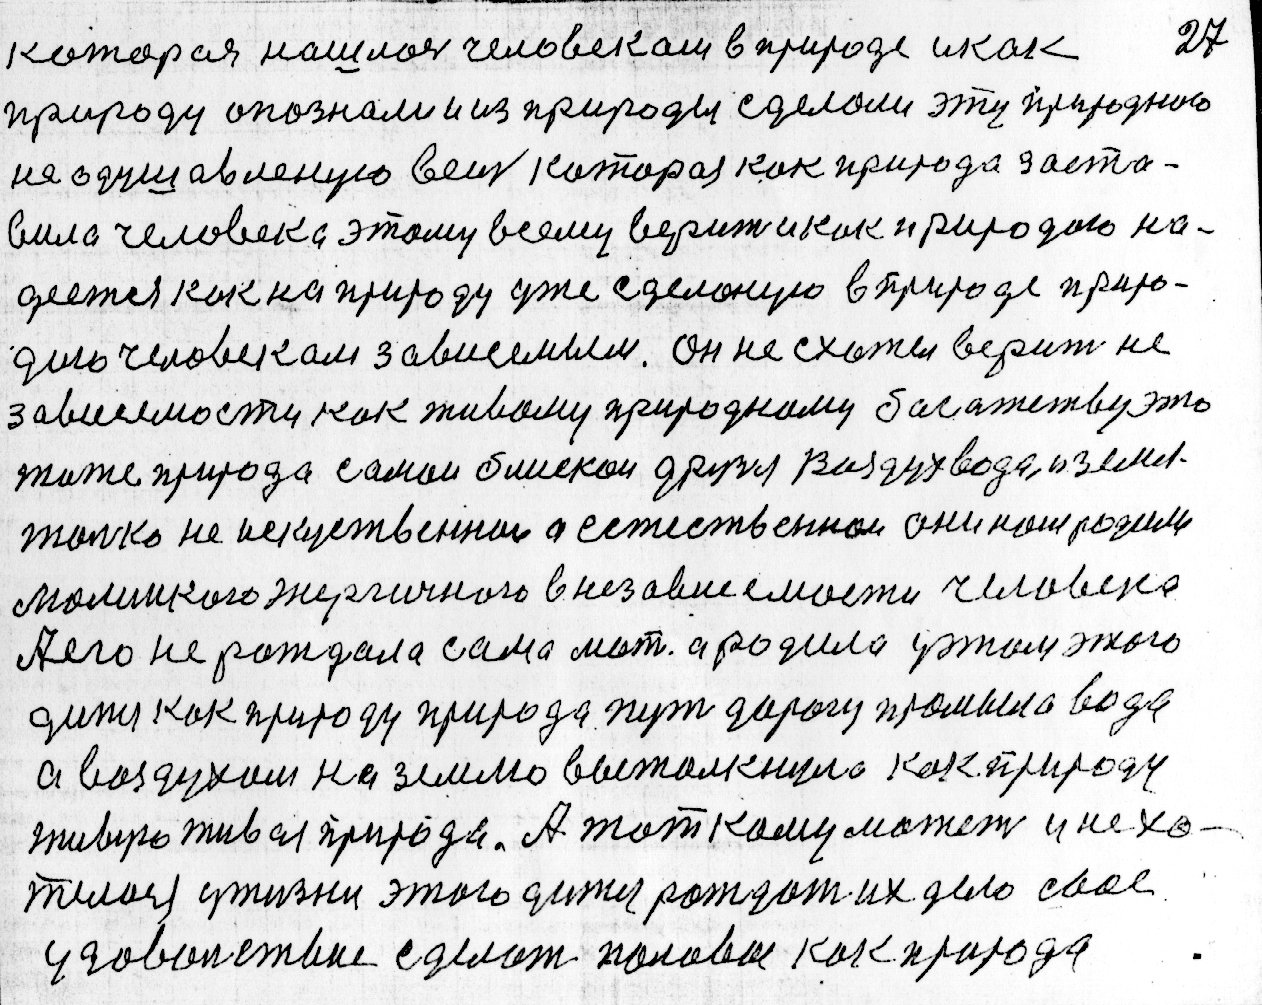 которая нашлоя человекам в природе и как 27
природу опознали и из природы сделали эту природного
не одушавленую вещ которая как природа заста-
вила человека этому всему верит и как природою на-
деется как на природу уже сделаную в природе приро-
дого человекам зависемым. Он не схотел верит не
зависемости как живому природному багатству это
тоже природа самои блиские друзя воздух вода, и земля
толко не искуственнои а естественнои они нам родили
малинкого энергичного в независемости человека
А его не рождала сама мат. а родила ужом этого
дитя как природу природа пут дорогу промыла вода
а воздухом на землю вытолкнула как природу
живую живая природа. А тот кому может и не хо-
телоя ужизни этого дитя рождат их дело свое
удоволствие сделат половое как природа